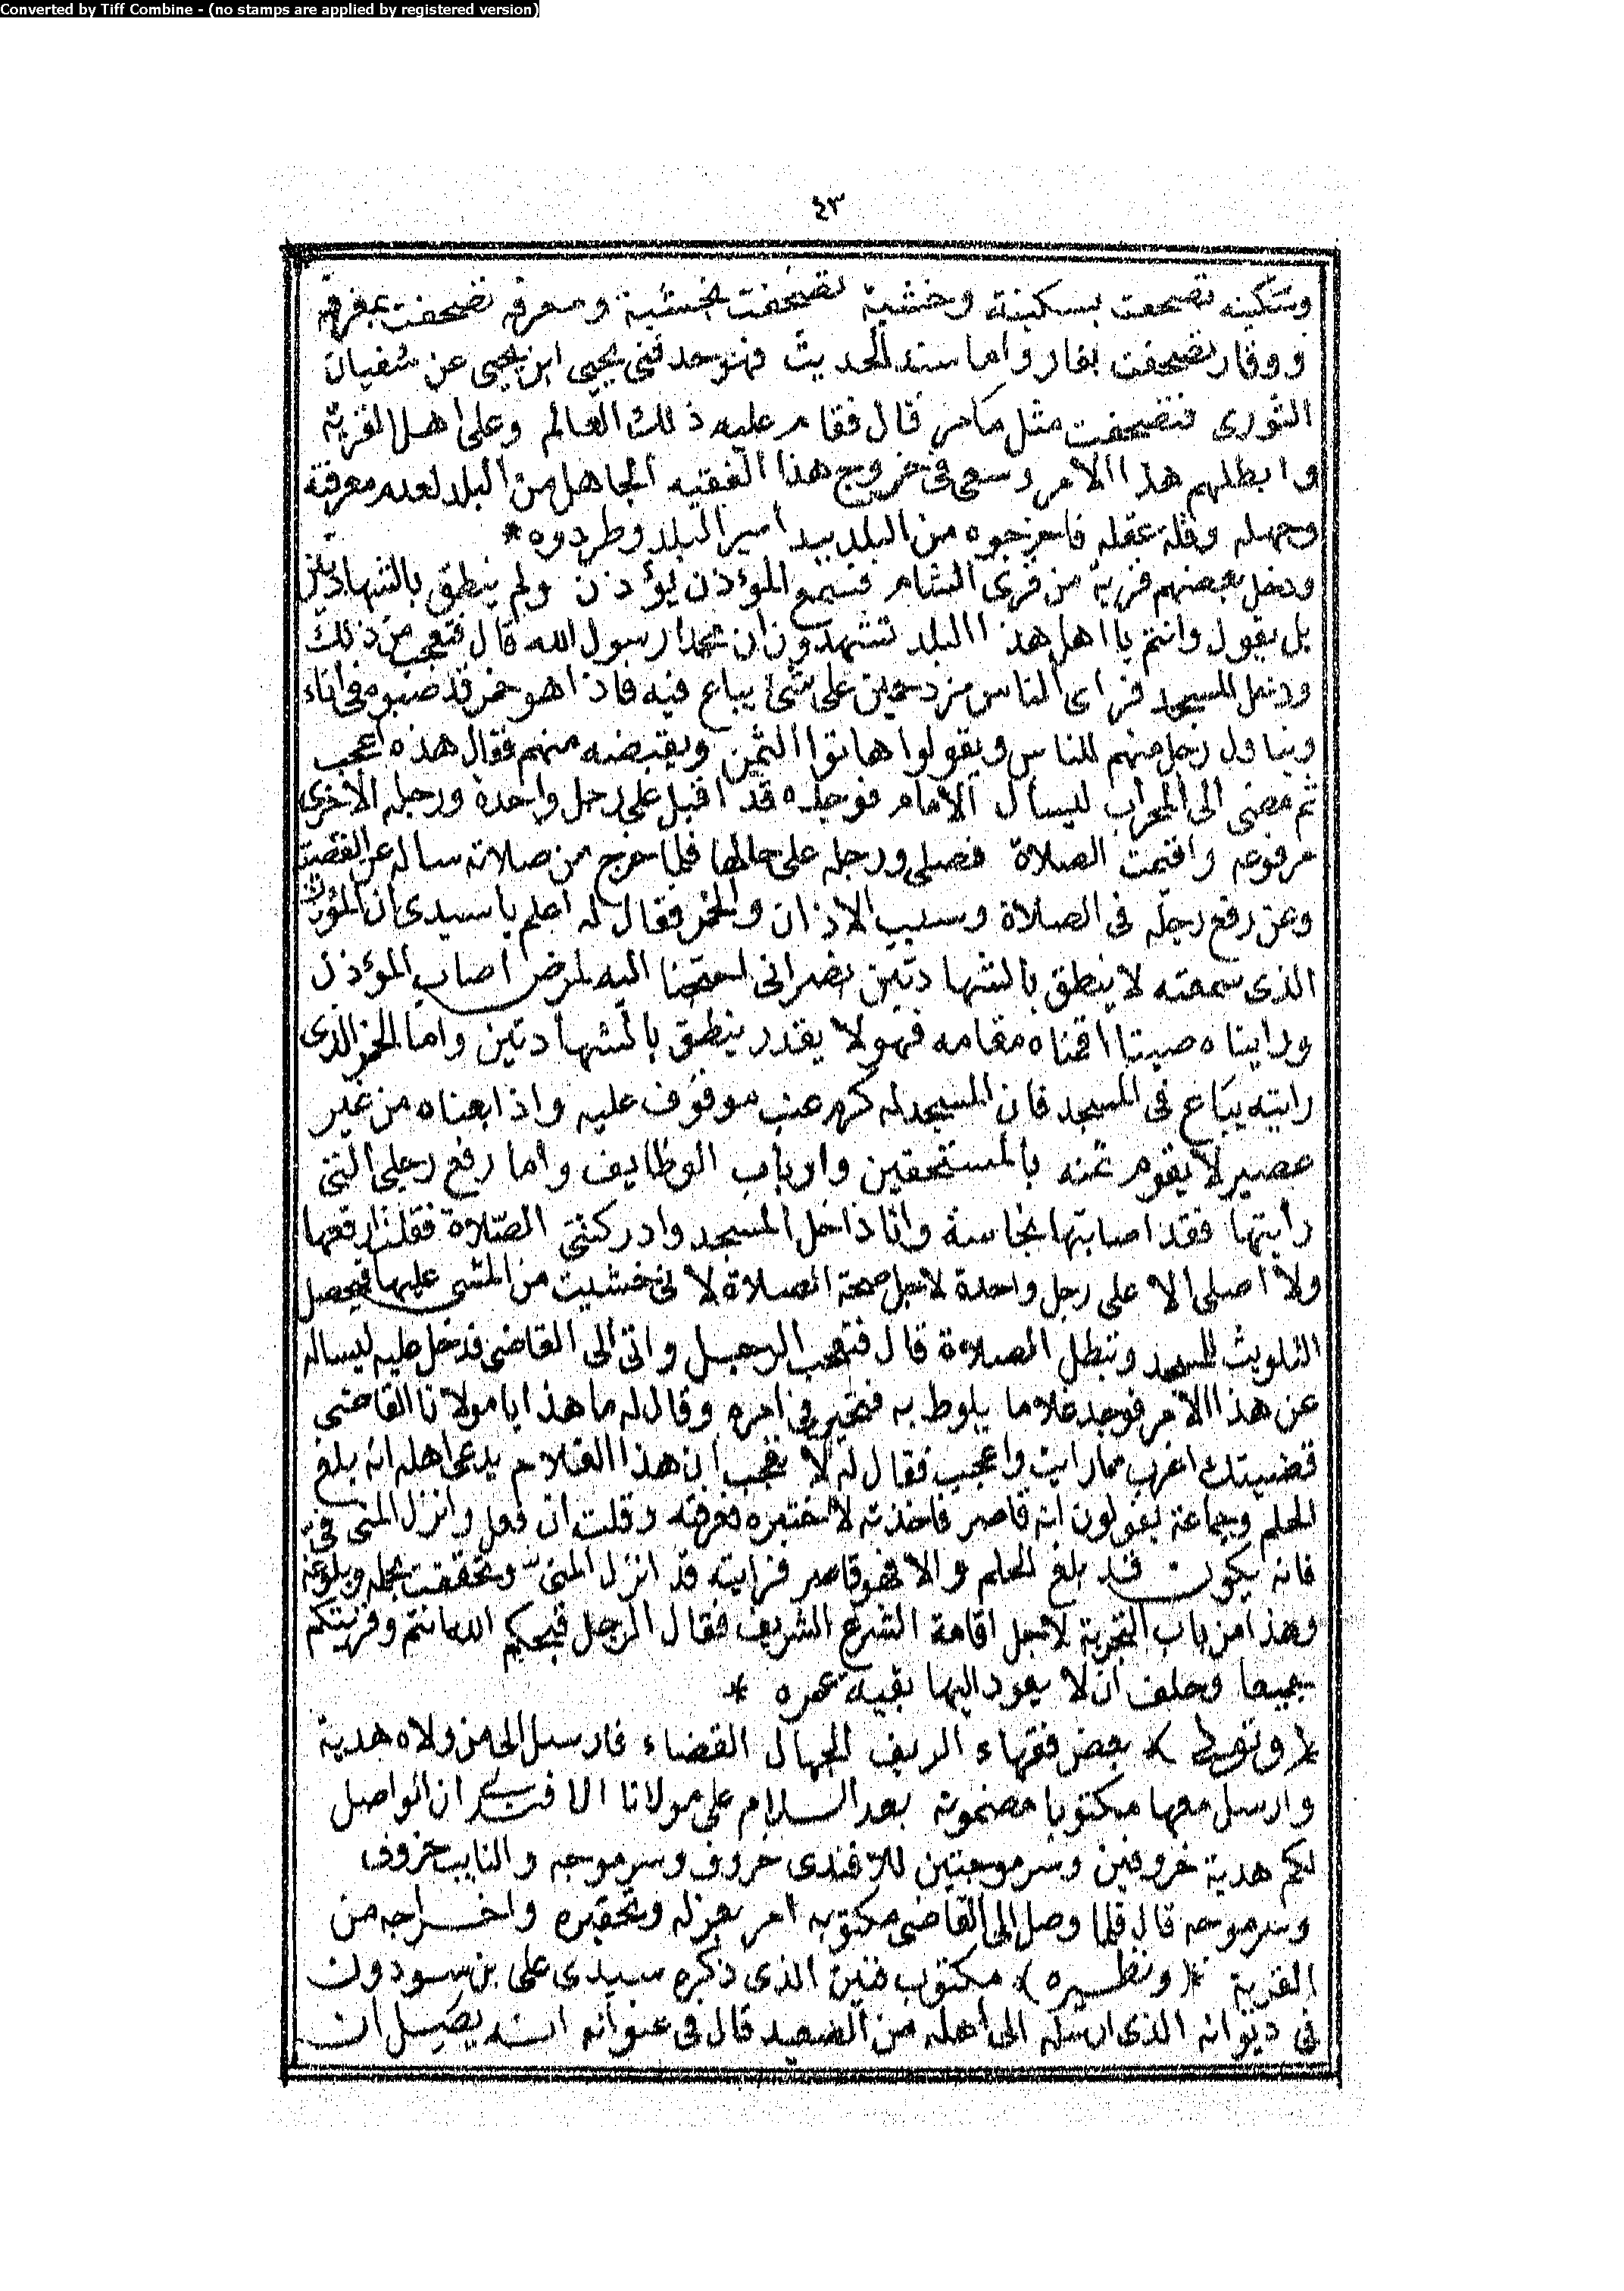 Converted by Tiff Combine - (no stamps are applied by registered version)
٤٣
وسكينه تصحفت بسكينة وخشية تصحفت بخشبية ومعرفه تصحفت بمغرفه
ووقار تصحفت بفار واما سند الحديث فهو حدثنى يحيى ابن يحيى عن سفيان
الثورى فتصحفت مثل مامر قال فقام عليه ذلك العالم وعلى اهل القرية
وابطلهم هذا الامر وسعى فى خروج هذا الفقيه الجاهل من البلد لعدم معرفته
وجهله وقلة عقله فاخرجوه من البلد بيد امير البلد وطردوه *
ودخل بعضهم قرية من قرى الشام فسمع المؤذن يؤذن ولم ينطق بالشهادتين
بل يقول وانتم يا اهل هذا البلد تشهدون ان محمدا رسول الله قال فتعجب من ذلك
ودخل المسجد فراى الناس مزدحمين على شئ يباع فيه فاذا هو خمر قد صبوه فى اناء
ويناول رجل منهم للناس ويقولوا هاتوا الثمن ويقبضه منهم فقال هذه اعجب
ثم مضى الى المحراب ليسال الامام فوجده قد اقبل على رجل واحدة ورجله الاخرى
مرفوعه واقيمت الصلاة فصلى ورجله على حالها فلما خرج من صلاته ساله عن القصة
وعن رفع رجله فى الصلاة وسبب الاذان والخمر فقال له اعلم يا سيدى ان المؤذن
الذى سمعته لا ينطق بالشهادتين نصرانى احتجنا اليه لمرض اصاب المؤذن
ورايناه صيتا اقمناه مقامه فهو لا يقدر ينطق بالشهادتين واما الخمر الذى
رايته يباع فى المسجد فان المسجد له كرم عنب موقوف عليه واذا بعناه من غير
عصير لا يقوم ثمنه بالمستحقين وارباب الوظايف واما رفع رجلى التى
رأيتها فقد اصابتها نجاسة وانا داخل المسجد وادركتنى الصلاة فقلت ارفعها
ولا اصلى الا على رجل واحدة لاجل صحة الصلاة لانى خشيت من المشى عليها فيحصل
التلويث للمسجد وتبطل الصلاة قال فتعجب الرجل واتى الى القاضى فدخل عليه ليساله
عن هذا الامر فوجد غلاما يلوط به فتحير فى امره وقال له ما هذا يا مولانا القاضى
قضيتك اغرب مما رايت واعجب فقال له لا تعجب ان هذا الغلام يدعى اهله انه بلغ
الحلم وجماعة يقولون انه قاصر فاخذته لاختبره فعرفته وقلت ان فعل وانزل المنى فىّ
فانه يكون قد بلغ الحلم والا فهو قاصر فرايته قد انزل المنىّ وتحققت بحمله وبلوغه
وهذا من باب التجربة لاجل اقامة الشرع الشريف فقال الرجل قبحكم الله انتم وقريتكم
جميعا وحلف ان لا يعود اليها بقية عمره *
* وتولى * بعض فقهاء الريف الجهال القضاء فارسل الى من ولاه هدية
وارسل معها مكتوبا مضمونه بعد السلام على مولانا الافندى ان الواصل
لكم هدية خروفين وسرموجتين للافندى خروف وسرموجه والنايب خروف
وسرموجه قال فلما وصل الى القاضى مكتوبه امر بعزله وتحقيره واخراجه من
القرية *(ونظيره)* مكتوب فتين الذى ذكره سيدى على بن سودون
فى ديوانه الذى ارسله الى اهله من الصعيد قال فى عنوانه انه يصل ان